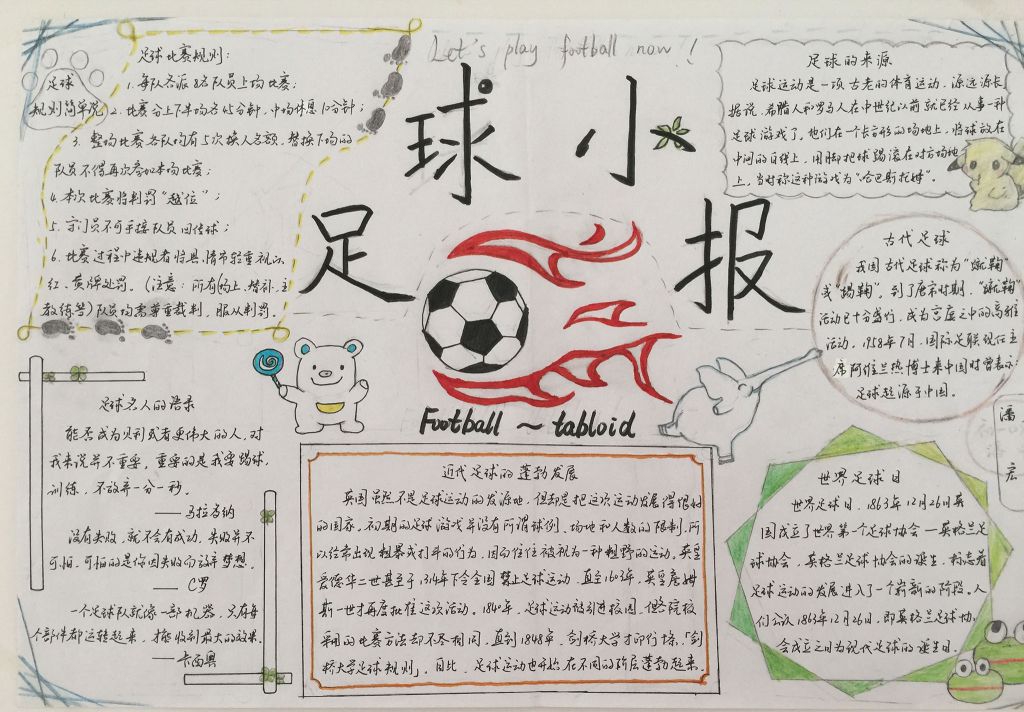 Let's play football now!
足球小报
Football ~ tabloid
足球
规则简单说
足球比赛规则：
1. 每队各派8名队员上场比赛；
2. 比赛分上下半场各45分钟，中场休息10分钟；
3. 整场比赛各队均有5次换人名额，替换下场的
队员不得再次参加本场比赛；
4. 本次比赛将判罚"越位"；
5. 守门员不可手接队员回传球；
6. 比赛过程中违规者将具情节轻重视以
红、黄牌处罚。（注意：所有(场上、替补、主
教练等)队员均需尊重裁判，服从判罚。
足球的来源
足球运动是一项古老的体育运动，源远流长
据说，希腊人和罗马人在中世纪以前就已经从事一种
足球游戏了，他们在一个长方形的场地上，将球放在
中间的白线上，用脚把球踢滚在对方场地
上，当时称这种游戏为"哈巴斯托姆"。
古代足球
我国古代足球称为"蹴鞠"
或"蹋鞠"，到了唐宋时期，"蹴鞠"
活动已十分盛行，成为宫庭之中的高雅
活动，1958年7月，国际足联现任主
席阿维兰热博士来中国时曾表示：
足球起源于中国。
足球名人的语录
能否成为贝利或者更伟大的人，对
我来说并不重要，重要的是我要踢球，
训练，不放弃一分一秒。
——马拉多纳
没有失败，就不会有成功，失败并不
可怕，可怕的是你因失败而放弃梦想。
—— C罗
一个足球队就像一部机器，只有每
个部件都运转起来，才能收到最大的效果。
——卡西奥
近代足球的蓬勃发展
英国虽然不是足球运动的发源地，但却是把这次运动发展得很好
的国家，初期的足球游戏并没有所谓球例、场地和人数的限制，所
以经常出现粗暴或打斗的行为，因而往往被视为一种粗野的运动。英皇
爱德华二世甚至于1314年下令全国禁止足球运动，直至1603年，英皇詹姆
斯一世才再度批准这次活动。1840年，足球运动被引进校园，但各院校
采用的比赛方法却不尽相同，直到1848年，剑桥大学才印行场，「剑
桥大学足球规则」，自此，足球运动也开始在不同的阶层蓬勃起来。
世界足球日
世界足球日，1863年12月26日英
国成立了世界第一个足球协会—英格兰足
球协会，英格兰足球协会的诞生，标志着
足球运动的发展进入了一个崭新的阶段。人
们公认1863年12月26日，即英格兰足球协
会成立之日为现代足球的诞生日。
潘
宏